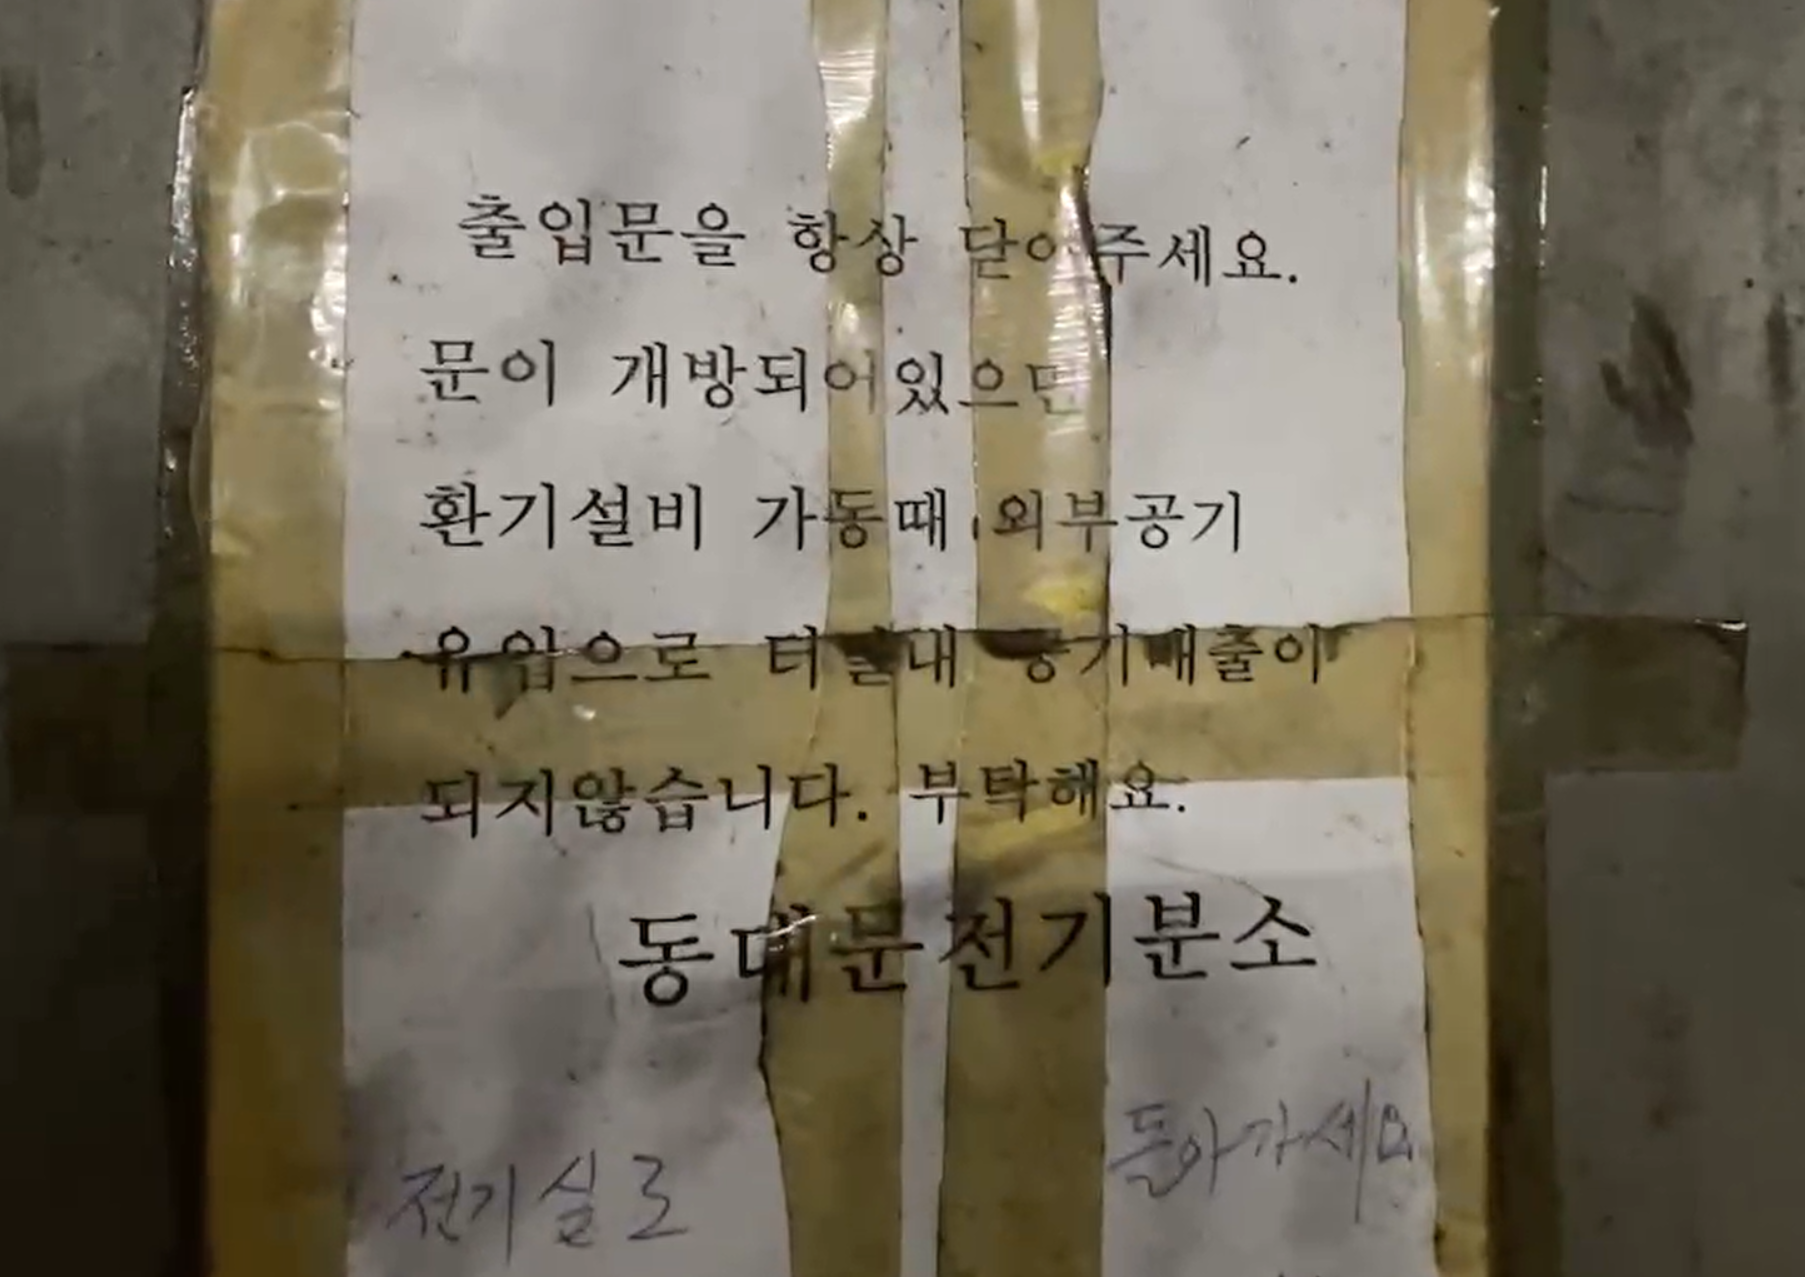 출입문을 항상 닫아주세요.
문이 개방되어있으면
환기설비 가동때 외부공기
유입으로 터널내 공기배출이
되지않습니다. 부탁해요.
동대문전기분소
돌아가세요
전기실로